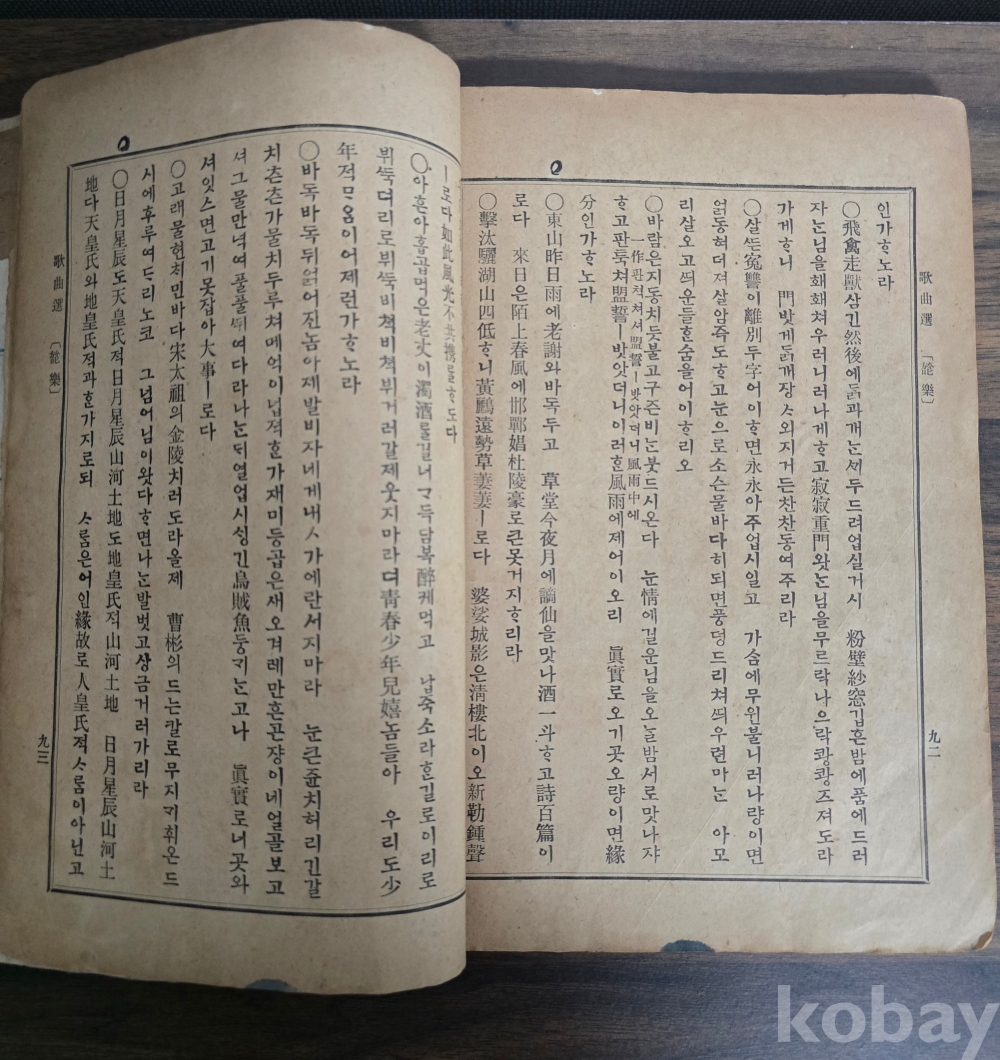 歌曲選 〔詮樂〕
九二
인가ᄒᆞ노라
〇飛禽走獸삼긴然後에ᄃᆞᆰ과개ᄂᆞᆫᄭᆡ두드려업실거시 粉壁紗窓깁흔밤에품에드러
자ᄂᆞᆫ님을홰홰쳐우러니러나게ᄒᆞ고寂寂重門왓ᄂᆞᆫ님을무르락나으락쾅쾅즈져도라
가게ᄒᆞ니 門밧게ᄃᆞᆰ개장ᄉᆞ외지거든찬찬동여주리라
〇살ᄯᅳᆫ寃讐이離別두字어이ᄒᆞ면永永아주업시일고 가슴에무읜불니러나량이면
얽동혀더져살암즉도ᄒᆞ고눈으로소슨물바다히되면풍덩드리쳐ᄯᅴ우련마ᄂᆞᆫ 아모
리살오고ᄯᅴ운들ᄒᆞᆫ숨을어이ᄒᆞ리오
〇바람은지동치듯불고구즌비ᄂᆞᆫ붓드시온다 눈情에걸운님을오ᄂᆞᆯ밤서로맛나쟈
ᄒᆞ고판툭쳐盟誓ㅣ밧앗더니이러ᄒᆞᆫ風雨에제어이오리 眞實로오기곳오량이면緣
一作판척쳐셔盟誓ㅣ밧앗더니風雨中에
分인가ᄒᆞ노라
〇東山昨日雨에老謝와바독두고 草堂今夜月에謫仙을맛나酒一斗ᄒᆞ고詩百篇이
로다 來日은陌上春風에邯鄲娼杜陵豪로큰못거지ᄒᆞ리라
〇擊汰驪湖山四低ᄒᆞ니黃鸝遠勢草萋萋ㅣ로다 婆娑城影은淸樓北이오新勒鍾聲
ㅣ로다如此風光不共携를ᄒᆞ도다
〇아흔아홉곱먹은老丈이濁酒를걸너ᄀᆞ득담복醉케먹고 납죡소라ᄒᆞᆫ길로이리로
뷔ᄯᅮᆨ뎌리로뷔ᄯᅮᆨ비쳑비쳑뷔거러갈제웃지마라뎌靑春少年兒嬉놈들아 우리도少
年적ᄆᆞᄋᆞᆷ이어제런가ᄒᆞ노라
〇바독바독뒤얽어진놈아제발비자네게내ᄉᆞ가에란서지마라 눈큰쥰치허리긴갈
치츤츤가물치두루쳐메억이넙젹ᄒᆞᆫ가재미등곱은새오겨레만흔곤쟝이네얼골보고
셔그물만녁여풀풀ᄯᅱ여다라나ᄂᆞᆫᄃᆡ열업시싱긴烏賊魚둥ᄀᆡᄂᆞᆫ고나 眞實로너곳와
셔잇스면고기못잡아大事ㅣ로다
〇고래물현ᄎᆡ민바다宋太祖의金陵치러도라올제 曹彬의드ᄂᆞᆫ칼로무지ᄀᆡ휘온드
시에후루여ᄃᆞ리노코 그넘어님이왓다ᄒᆞ면나ᄂᆞᆫ발벗고상금거러가리라
〇日月星辰도天皇氏적日月星辰山河土地도地皇氏적山河土地 日月星辰山河土
地다天皇氏와地皇氏적과ᄒᆞᆫ가지로되 ᄉᆞᄅᆞᆷ은어인緣故로人皇氏적ᄉᆞᄅᆞᆷ이아닌고
歌曲選 〔詮樂〕
九三
kobay